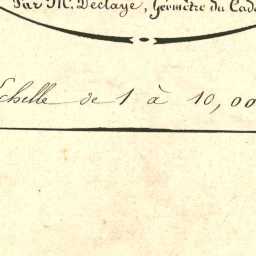 Par M. Declaye, Géomètre du Cad
Echelle de 1 à 10,00